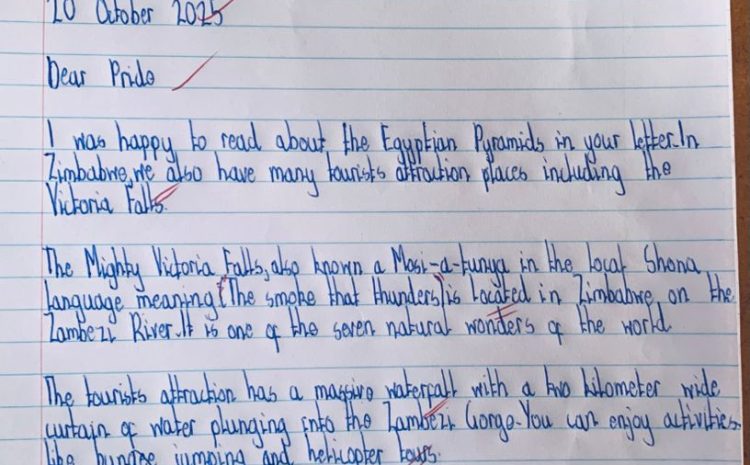 20 October 2025
Dear Pride
I was happy to read about the Egyptian Pyramids in your letter.In
Zimbabwe,we also have many tourists attraction places including the
Victoria Falls.
The Mighty Victoria Falls,also known a Mosi-a-tunya in the local Shona
language meaning(The smoke that thunders)is located in Zimbabwe on the
Zambezi River.It is one of the seven natural wonders of the world
The tourists attraction has a massive waterfall with a two kilometer wide
curtain of water plunging into the Zambezi Gorge.You can enjoy activities
like bungee jumping and helicopter tours.